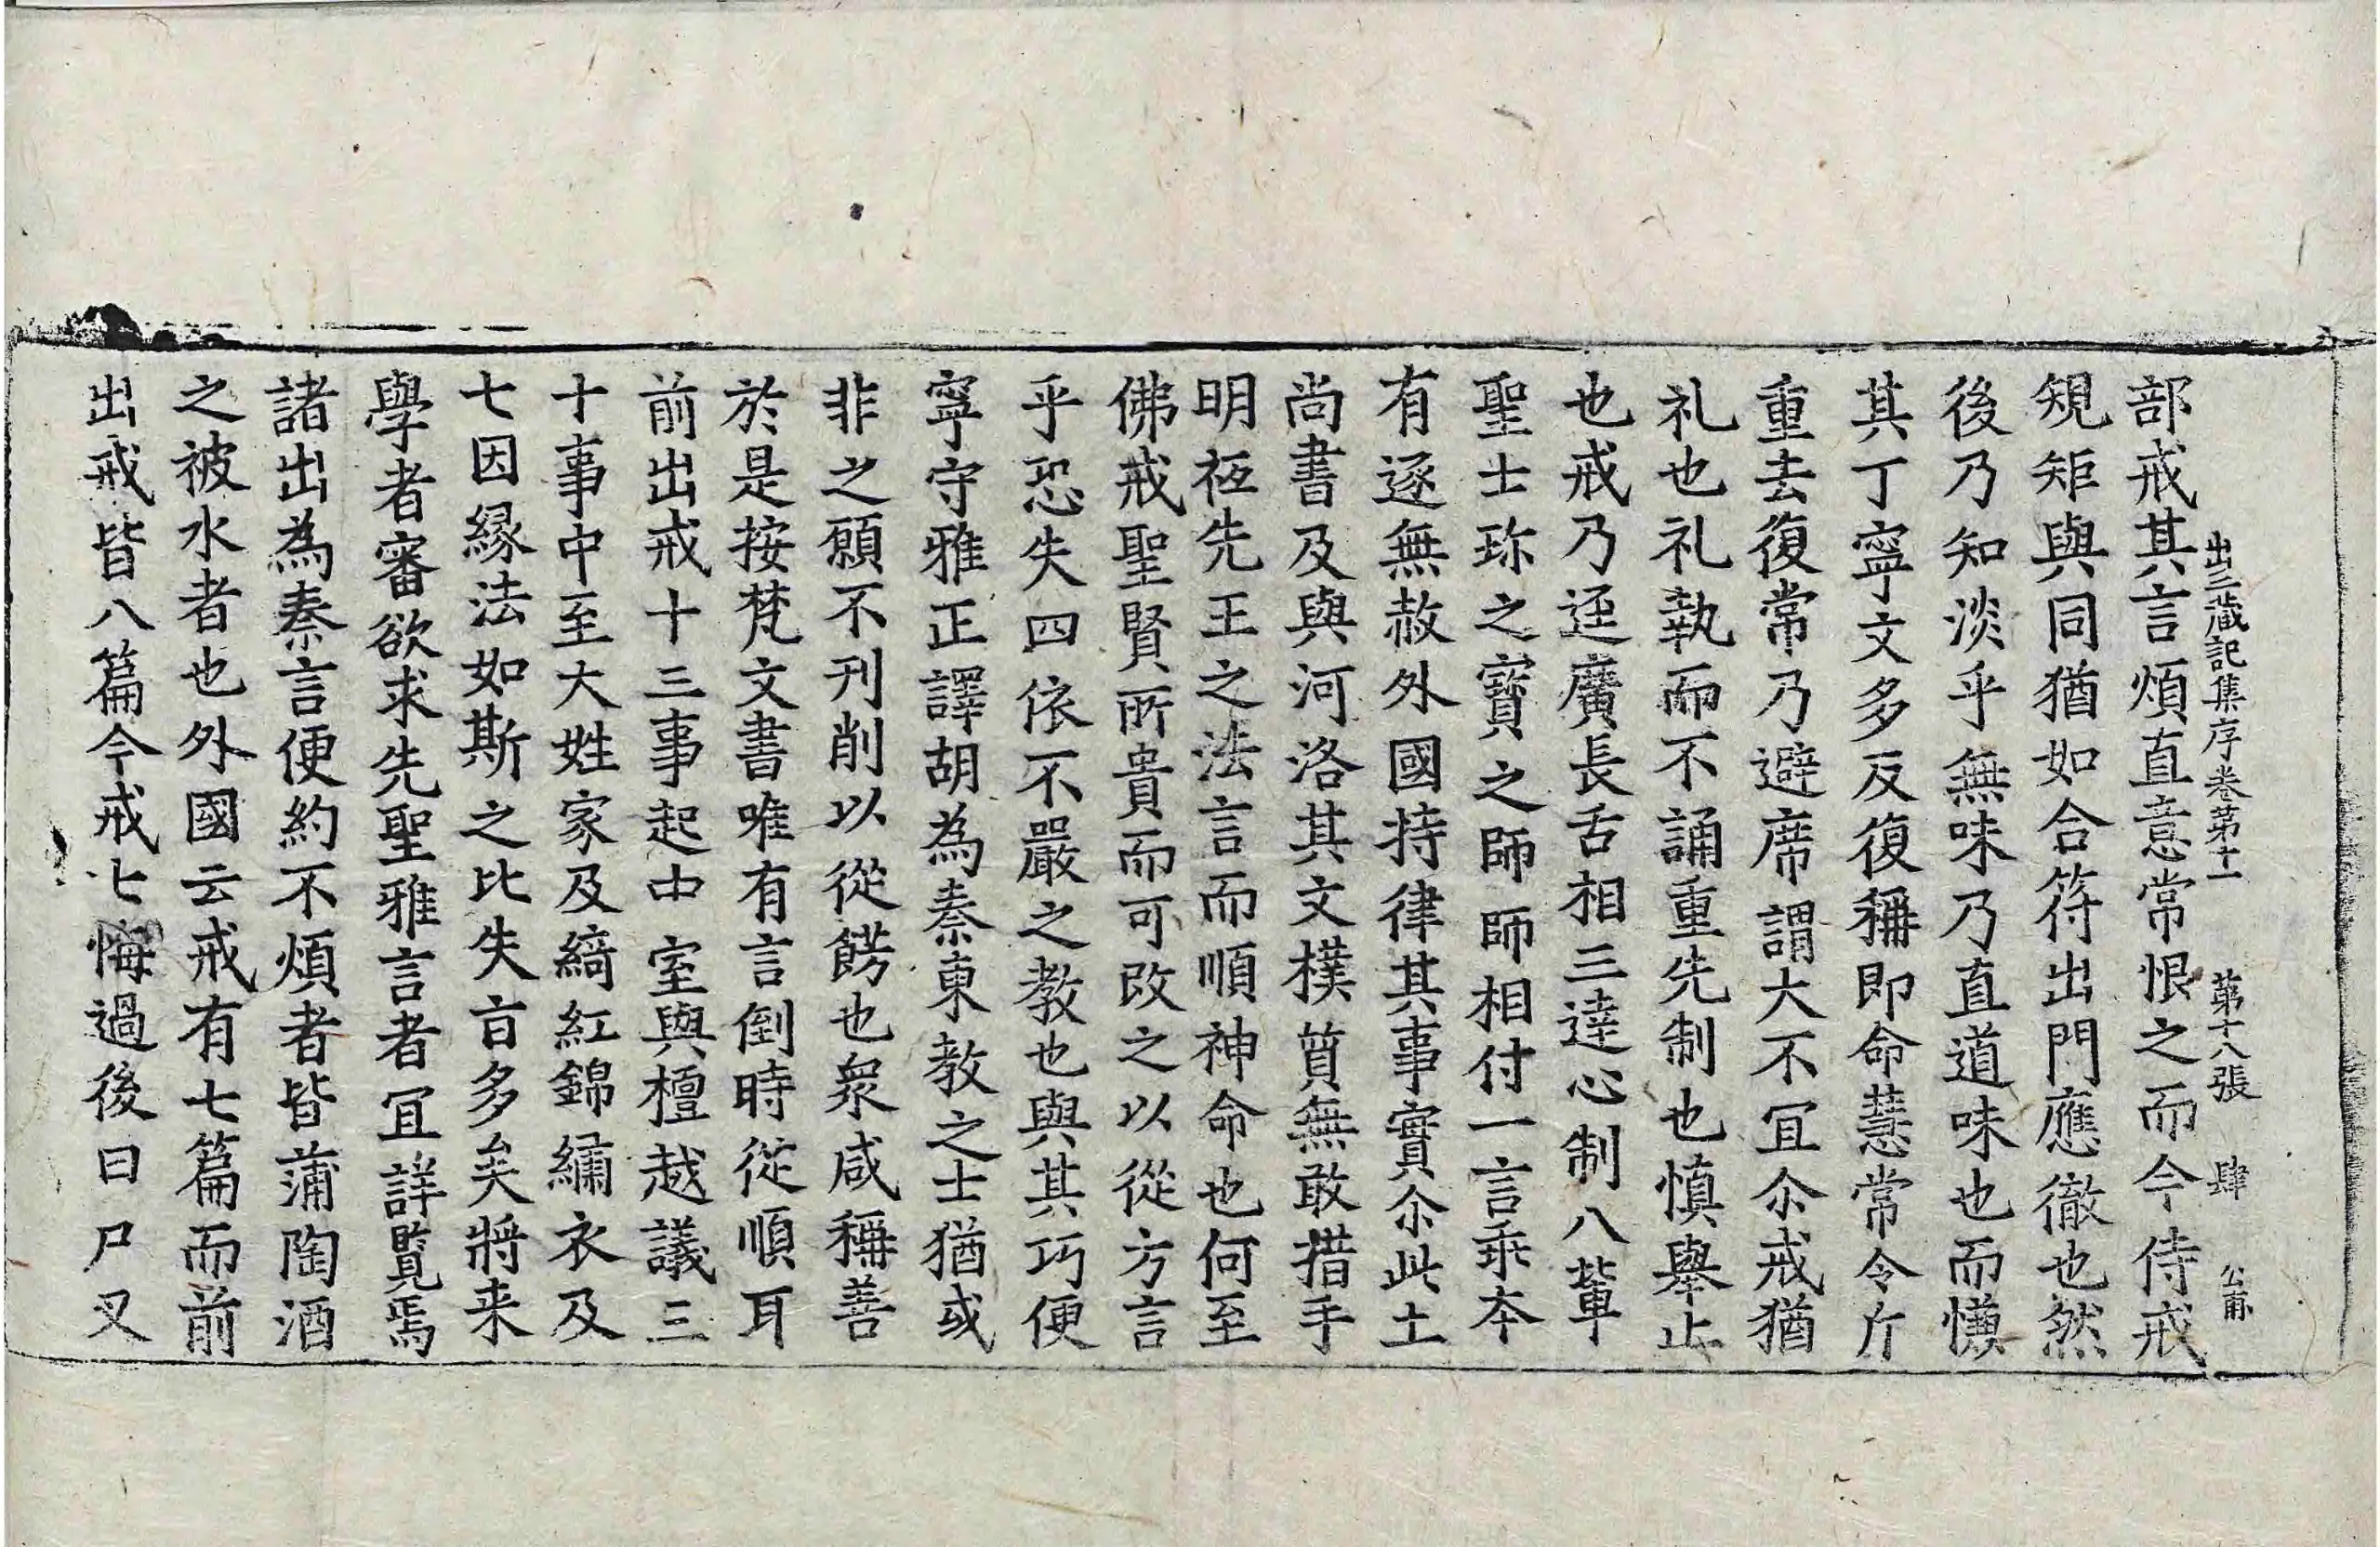 出三蔵記集序卷第十一　第十八張　肆　公甫
部戒其言煩直意常恨之而今侍戒
規矩與同猶如合符出門應徹也然
後乃知淡乎無味乃直道味也而慊
其丁寧文多反復稱即命慧常令斤
重去復常乃避席謂大不宜尒戒猶
礼也礼執而不誦重先制也慎舉止
也戒乃逕廣長舌相三達心制八軰
聖士珎之寳之師師相付一言乖夲
有逐無赦外國持律其事實尒此土
尚書及與河洛其文樸質無敢措手
明祗先王之法言而順神命也何至
佛戒聖賢所貴而可改之以從方言
乎恐失四依不嚴之教也與其巧便
寧守雅正譯胡為秦東教之士猶或
非之願不刊削以從餝也衆咸稱善
於是按梵文書唯有言倒時從順耳
前出戒十三事起中室與檀越議三
十事中至大姓家及綺紅錦繡衣及
七因縁法如斯之比失㫖多矣將来
學者審欲求先聖雅言者冝詳覧焉
諸出為秦言便約不煩者皆蒲陶酒
之被水者也外國云戒有七篇而前
出戒皆八篇今戒七悔過後曰尸叉